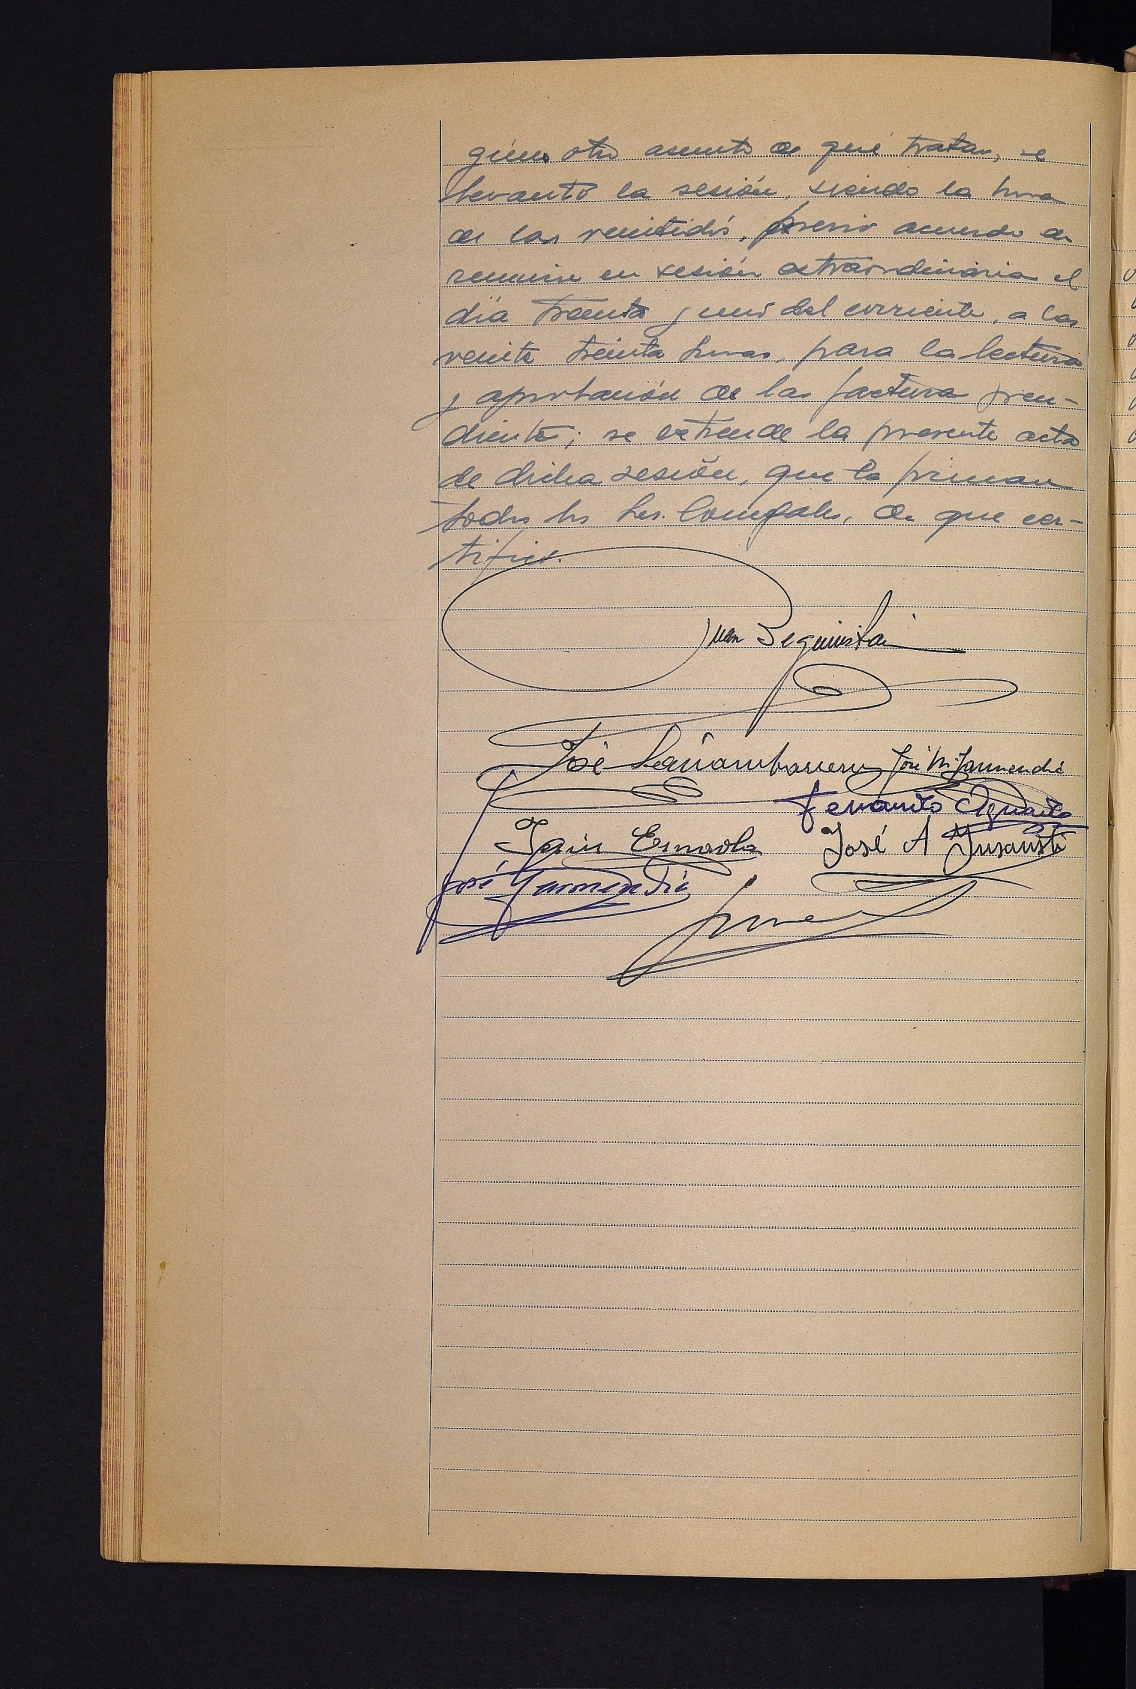 gún otro asunto de qué tratar, se
levantó la sesión, siendo la hora
de las veintidós, previo acuerdo de
reunirse en sesión extraordinaria el
día treinta y uno del corriente, a las
veinte treinta horas, para la lectura
y aprobación de las facturas pen-
dientes; se extiende la presente acta
de dicha sesión, que la firman
todos los Srs. Concejales, de que cer-
tifico.
Juan Beguiristain
José
José M. Garmendia
Fernando
José A
José Garmendia